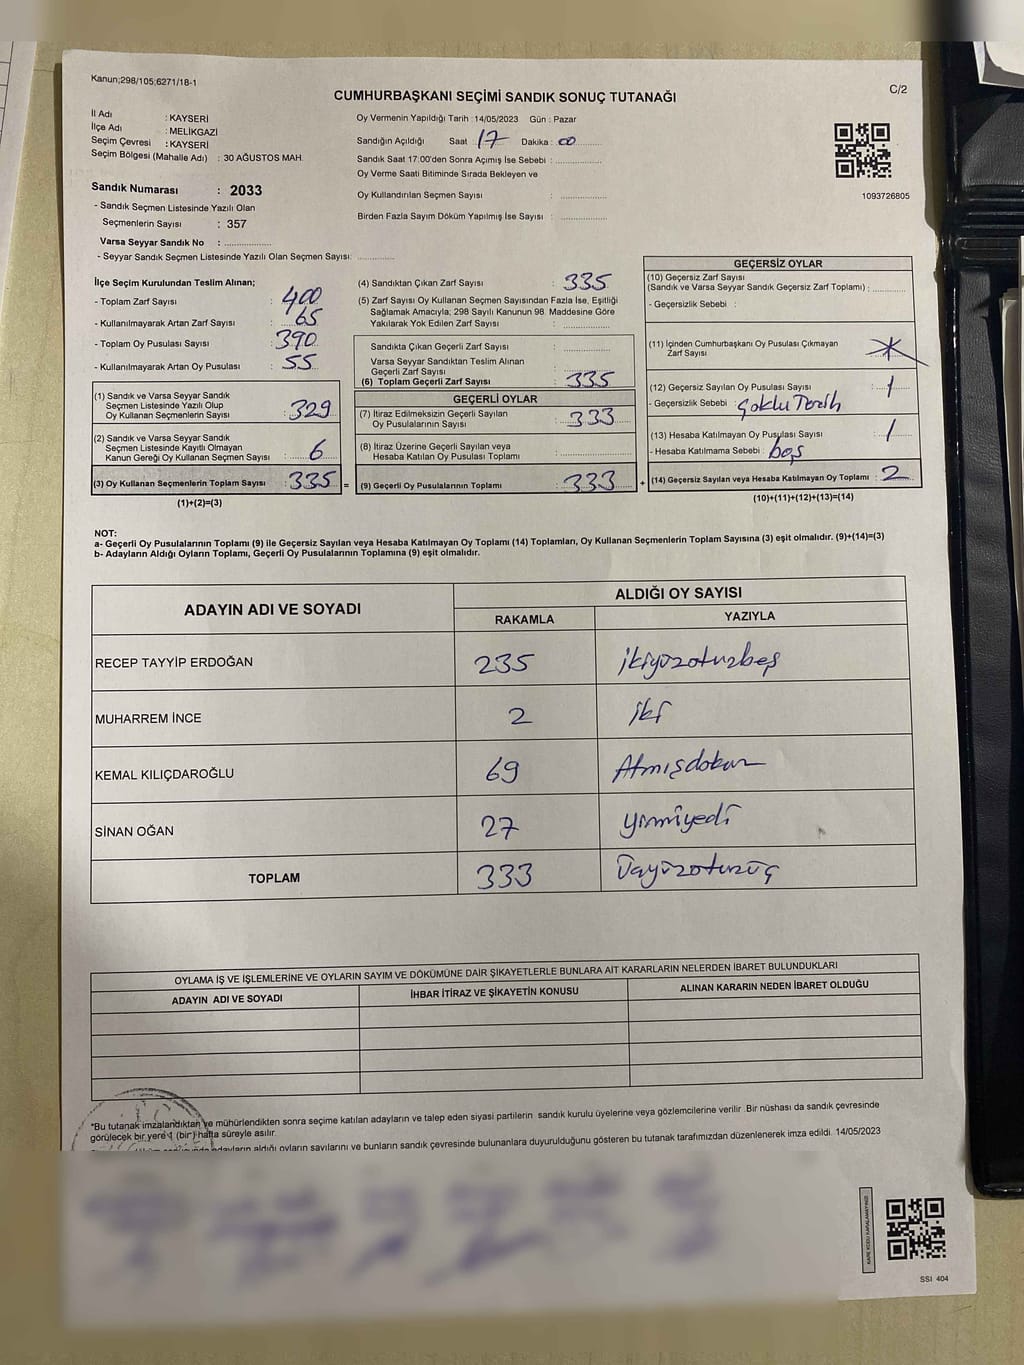 Kanun;298/105;6271/18-1
C/2
CUMHURBAŞKANI SEÇİMİ SANDIK SONUÇ TUTANAĞI
İl Adı : KAYSERİ
İlçe Adı : MELİKGAZİ
Seçim Çevresi : KAYSERİ
Seçim Bölgesi (Mahalle Adı) : 30 AĞUSTOS MAH.
Sandık Numarası : 2033
- Sandık Seçmen Listesinde Yazılı Olan
Seçmenlerin Sayısı : 357
Varsa Seyyar Sandık No : ................
- Seyyar Sandık Seçmen Listesinde Yazılı Olan Seçmen Sayısı: .............
Oy Vermenin Yapıldığı Tarih :14/05/2023 Gün : Pazar
Sandığın Açıldığı Saat 17 Dakika : 00
Sandık Saat 17:00'den Sonra Açımış İse Sebebi : ................
Oy Verme Saati Bitiminde Sırada Bekleyen ve
Oy Kullandırılan Seçmen Sayısı : ................
Birden Fazla Sayım Döküm Yapılmış İse Sayısı : ................
1093726805
İlçe Seçim Kurulundan Teslim Alınan;
- Toplam Zarf Sayısı : 400
- Kullanılmayarak Artan Zarf Sayısı : 65
- Toplam Oy Pusulası Sayısı : 390
- Kullanılmayarak Artan Oy Pusulası : 55
(1) Sandık ve Varsa Seyyar Sandık
Seçmen Listesinde Yazılı Olup
Oy Kullanan Seçmenlerin Sayısı : 329
(2) Sandık ve Varsa Seyyar Sandık
Seçmen Listesinde Kayıtlı Olmayan
Kanun Gereği Oy Kullanan Seçmen Sayısı : 6
(3) Oy Kullanan Seçmenlerin Toplam Sayısı : 335 =
(1)+(2)=(3)
(4) Sandıktan Çıkan Zarf Sayısı : 335
(5) Zarf Sayısı Oy Kullanan Seçmen Sayısından Fazla İse, Eşitliği
Sağlamak Amacıyla; 298 Sayılı Kanunun 98. Maddesine Göre
Yakılarak Yok Edilen Zarf Sayısı : ................
Sandıkta Çıkan Geçerli Zarf Sayısı : ................
Varsa Seyyar Sandıktan Teslim Alınan
Geçerli Zarf Sayısı : ................
(6) Toplam Geçerli Zarf Sayısı : 335
GEÇERLİ OYLAR
(7) İtiraz Edilmeksizin Geçerli Sayılan
Oy Pusulalarının Sayısı : 333
(8) İtiraz Üzerine Geçerli Sayılan veya
Hesaba Katılan Oy Pusulası Toplamı : ................
(9) Geçerli Oy Pusulalarının Toplamı : 333 +
GEÇERSİZ OYLAR
(10) Geçersiz Zarf Sayısı
(Sandık ve Varsa Seyyar Sandık Geçersiz Zarf Toplamı) : ............
- Geçersizlik Sebebi :
(11) İçinden Cumhurbaşkanı Oy Pusulası Çıkmayan
Zarf Sayısı
(12) Geçersiz Sayılan Oy Pusulası Sayısı : 1
- Geçersizlik Sebebi : Çoklu Tercih
(13) Hesaba Katılmayan Oy Pusulası Sayısı : 1
- Hesaba Katılmama Sebebi : boş
(14) Geçersiz Sayılan veya Hesaba Katılmayan Oy Toplamı : 2
(10)+(11)+(12)+(13)=(14)
NOT:
a- Geçerli Oy Pusulalarının Toplamı (9) ile Geçersiz Sayılan veya Hesaba Katılmayan Oy Toplamı (14) Toplamları, Oy Kullanan Seçmenlerin Toplam Sayısına (3) eşit olmalıdır. (9)+(14)=(3)
b- Adayların Aldığı Oyların Toplamı, Geçerli Oy Pusulalarının Toplamına (9) eşit olmalıdır.
ADAYIN ADI VE SOYADI
ALDIĞI OY SAYISI
RAKAMLA YAZIYLA
RECEP TAYYİP ERDOĞAN 235 ikiyüzotuzbeş
MUHARREM İNCE 2 iki
KEMAL KILIÇDAROĞLU 69 Atmışdokuz
SİNAN OĞAN 27 yirmiyedi
TOPLAM 333 Üçyüzotuzüç
OYLAMA İŞ VE İŞLEMLERİNE VE OYLARIN SAYIM VE DÖKÜMÜNE DAİR ŞİKAYETLERLE BUNLARA AİT KARARLARIN NELERDEN İBARET BULUNDUKLARI
ADAYIN ADI VE SOYADI İHBAR İTİRAZ VE ŞİKAYETİN KONUSU ALINAN KARARIN NEDEN İBARET OLDUĞU
*Bu tutanak imzalandıktan ve mühürlendikten sonra seçime katılan adayların ve talep eden siyasi partilerin sandık kurulu üyelerine veya gözlemcilerine verilir .Bir nüshası da sandık çevresinde
görülecek bir yere 1 (bir) hafta süreyle asılır.
adayların aldığı oyların sayılarını ve bunların sandık çevresinde bulunanlara duyurulduğunu gösteren bu tutanak tarafımızdan düzenlenerek imza edildi. 14/05/2023
KARE KODU KARALAMAYINIZ!
SSI 404